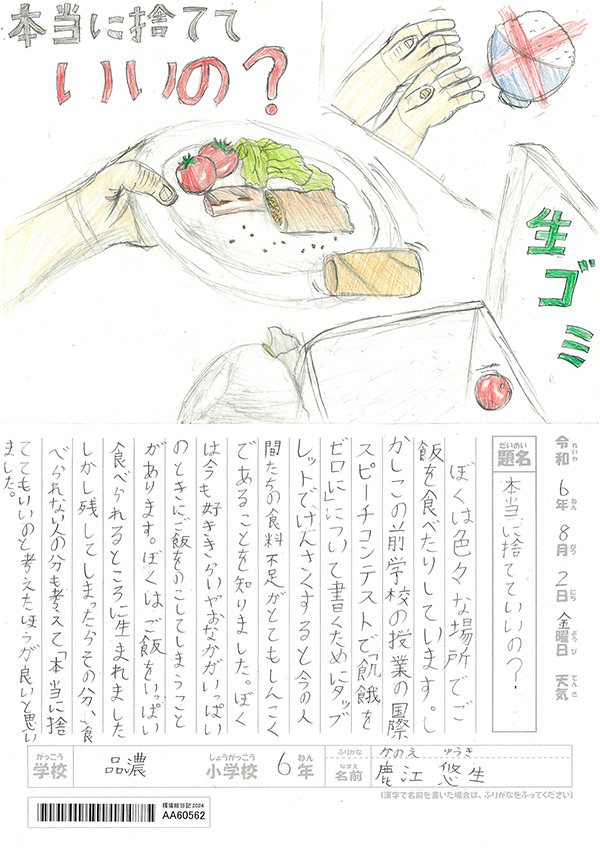 本当に捨てて
いいの?
生ゴミ
令和6年8月2日金曜日 天気
れいわ ねん がつ にち ようび てんき
だいめい
題名
本当に捨てていいの?
ぼくは色々な場所でご
飯を食べたりしています。し
かしこの前学校の授業の国際
スピーチコンテストで「飢餓を
ゼロに」について書くためにタブ
レットでけんさくすると今の人
間たちの食料不足がとてもしんこく
であることを知りました。ぼく
は今も好ききらいやおなかがいっぱい
のときにご飯をのこしてしまうこと
があります。ぼくはご飯をいっぱい
食べられるところに生まれました
しかし残してしまったらその分、食
べられない人の分も考えて「本当に捨
ててもいいのと考えたほうが良いと思い
ました。
がっこう
学校
品濃
しょうがっこう ねん
小学校 6年
ふりがな
かのえ ゆうき
なまえ
名前
鹿江 悠生
(漢字で名前を書いた場合は、ふりがなをふってください)
環境絵日記2024
AA60562